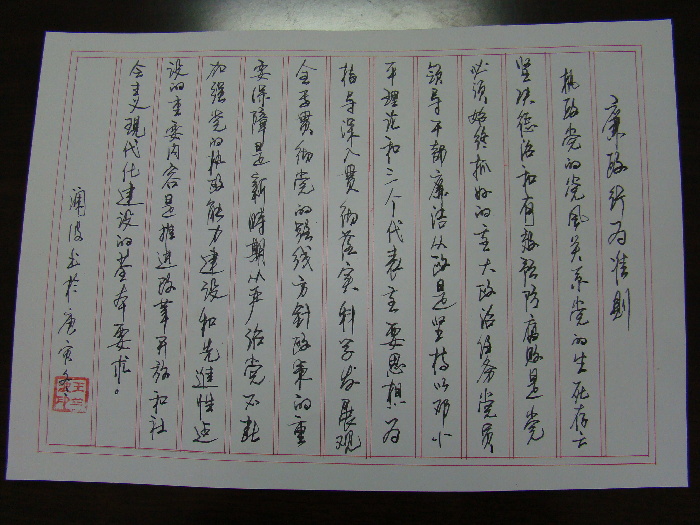 廉政行为准则
执政党的党风关系党的生死存亡
坚决惩治和有效预防腐败是党
必须始终抓好的重大政治任务党员
领导干部廉洁从政是坚持以邓小
平理论和三个代表主要思想为
指导深入贯彻落实科学发展观
全面贯彻党的路线方针政策的重
要保障是新時期从严治党不断
加强党的执政能力建设和先進性建
设的重要内容是推進改革开放和社
会主义現代化建设的基本要求。
澜波书於庚寅冬